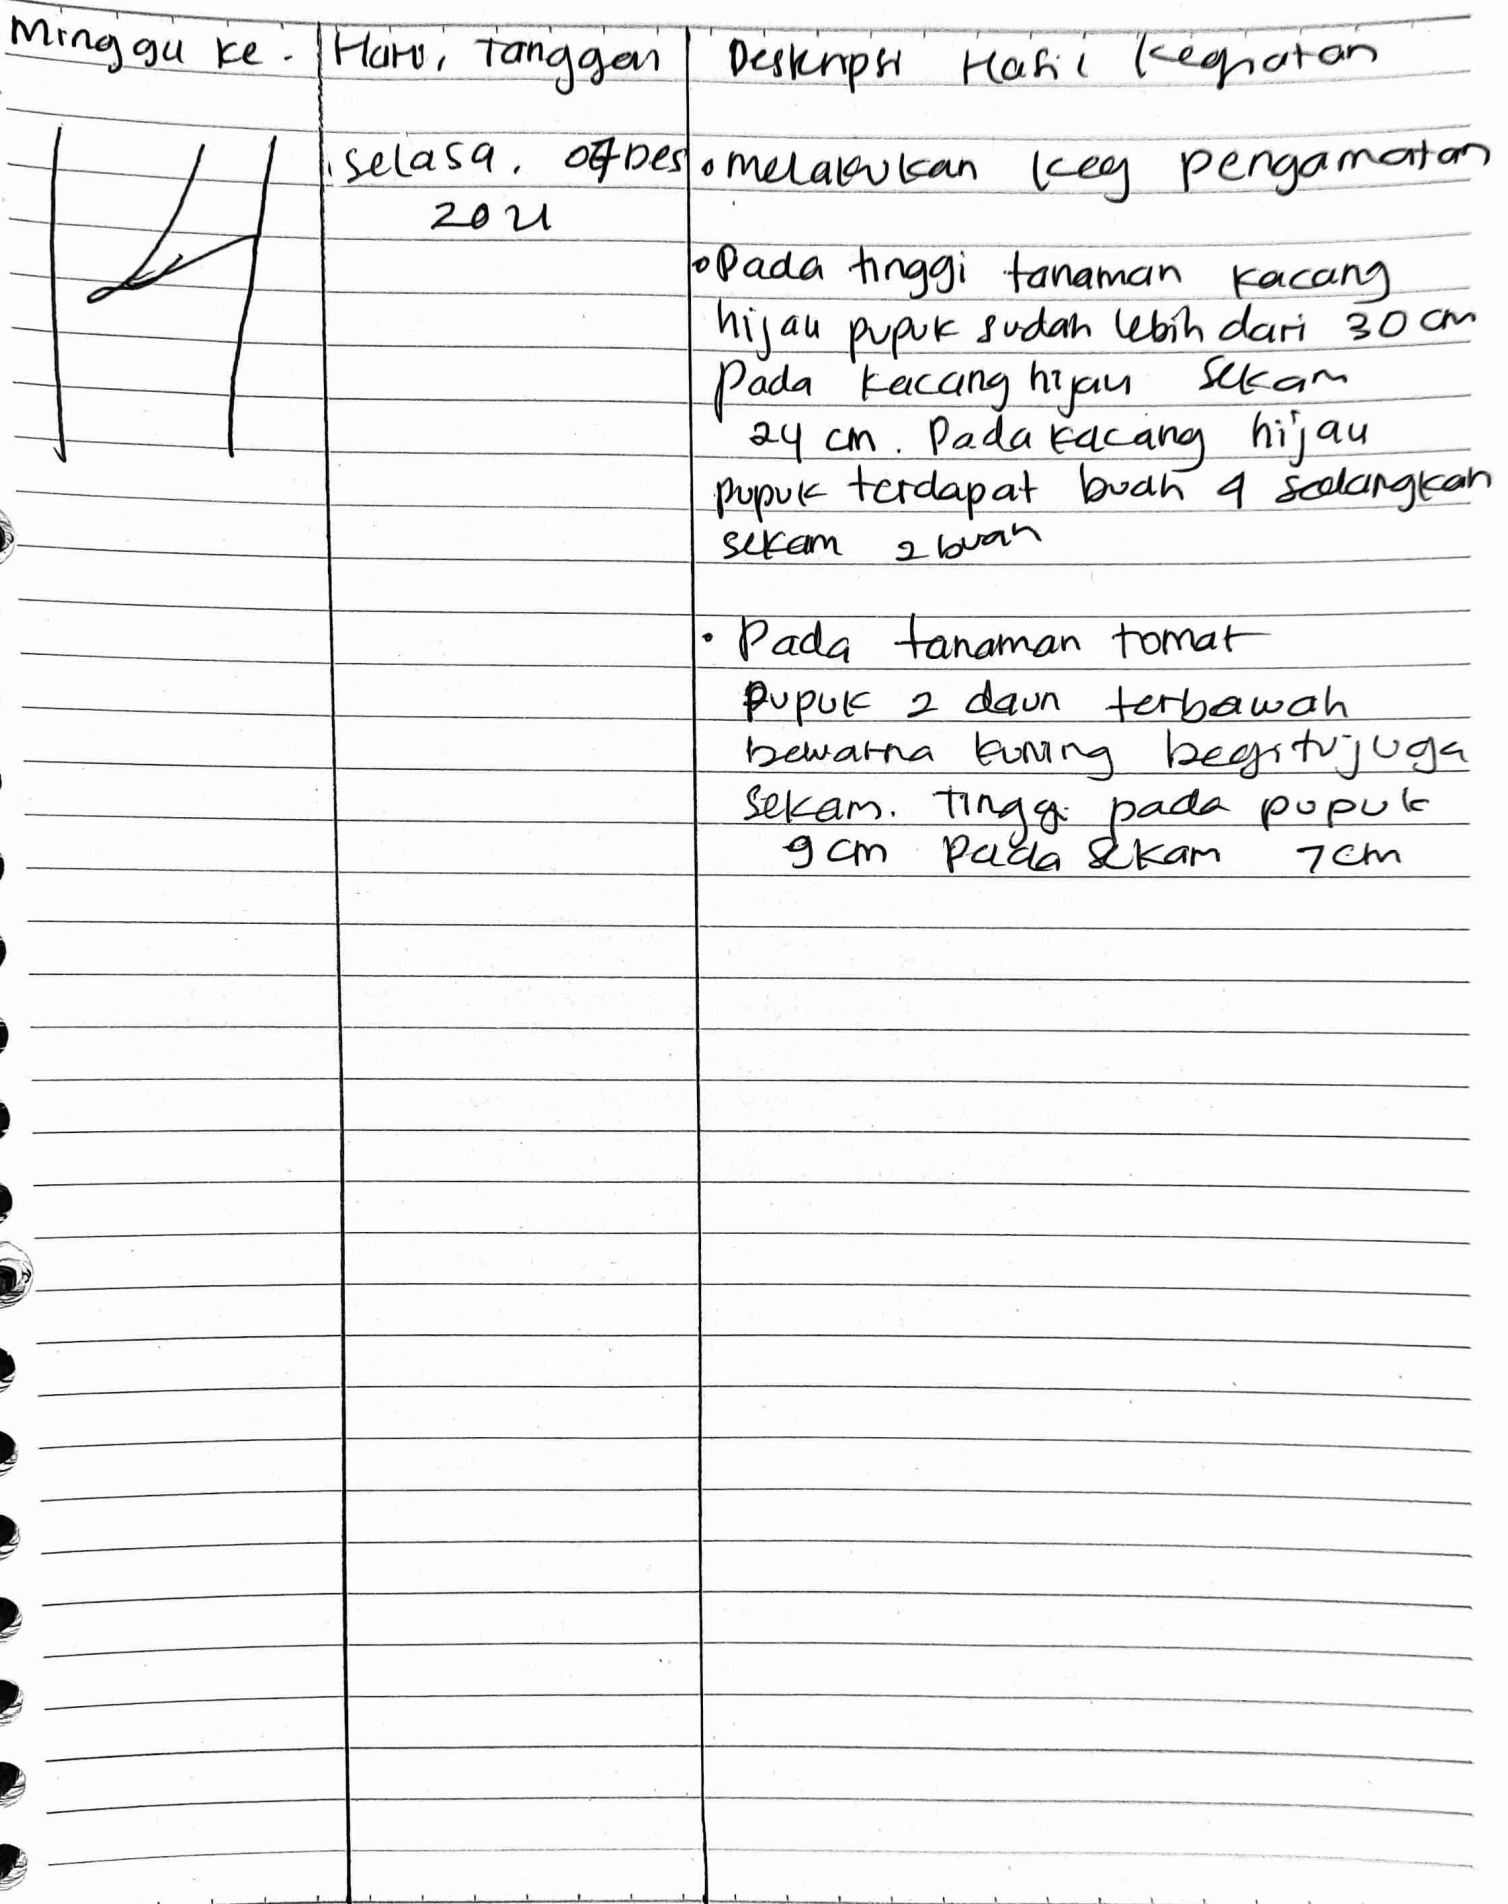 Minggu ke. Hari, Tanggal Deskripsi Hasil Kegiatan
14
Selasa, 07 Des
2021
• Melakukan keg pengamatan
• Pada tinggi tanaman kacang
hijau pupuk sudah lebih dari 30 cm
Pada kacang hijau sekam
24 cm. Pada kacang hijau
pupuk terdapat buah 4 sedangkan
sekam 2 buah
• Pada tanaman tomat
pupuk 2 daun terbawah
bewarna kuning begitu juga
sekam. Tinggi pada pupuk
9 cm pada sekam 7 cm